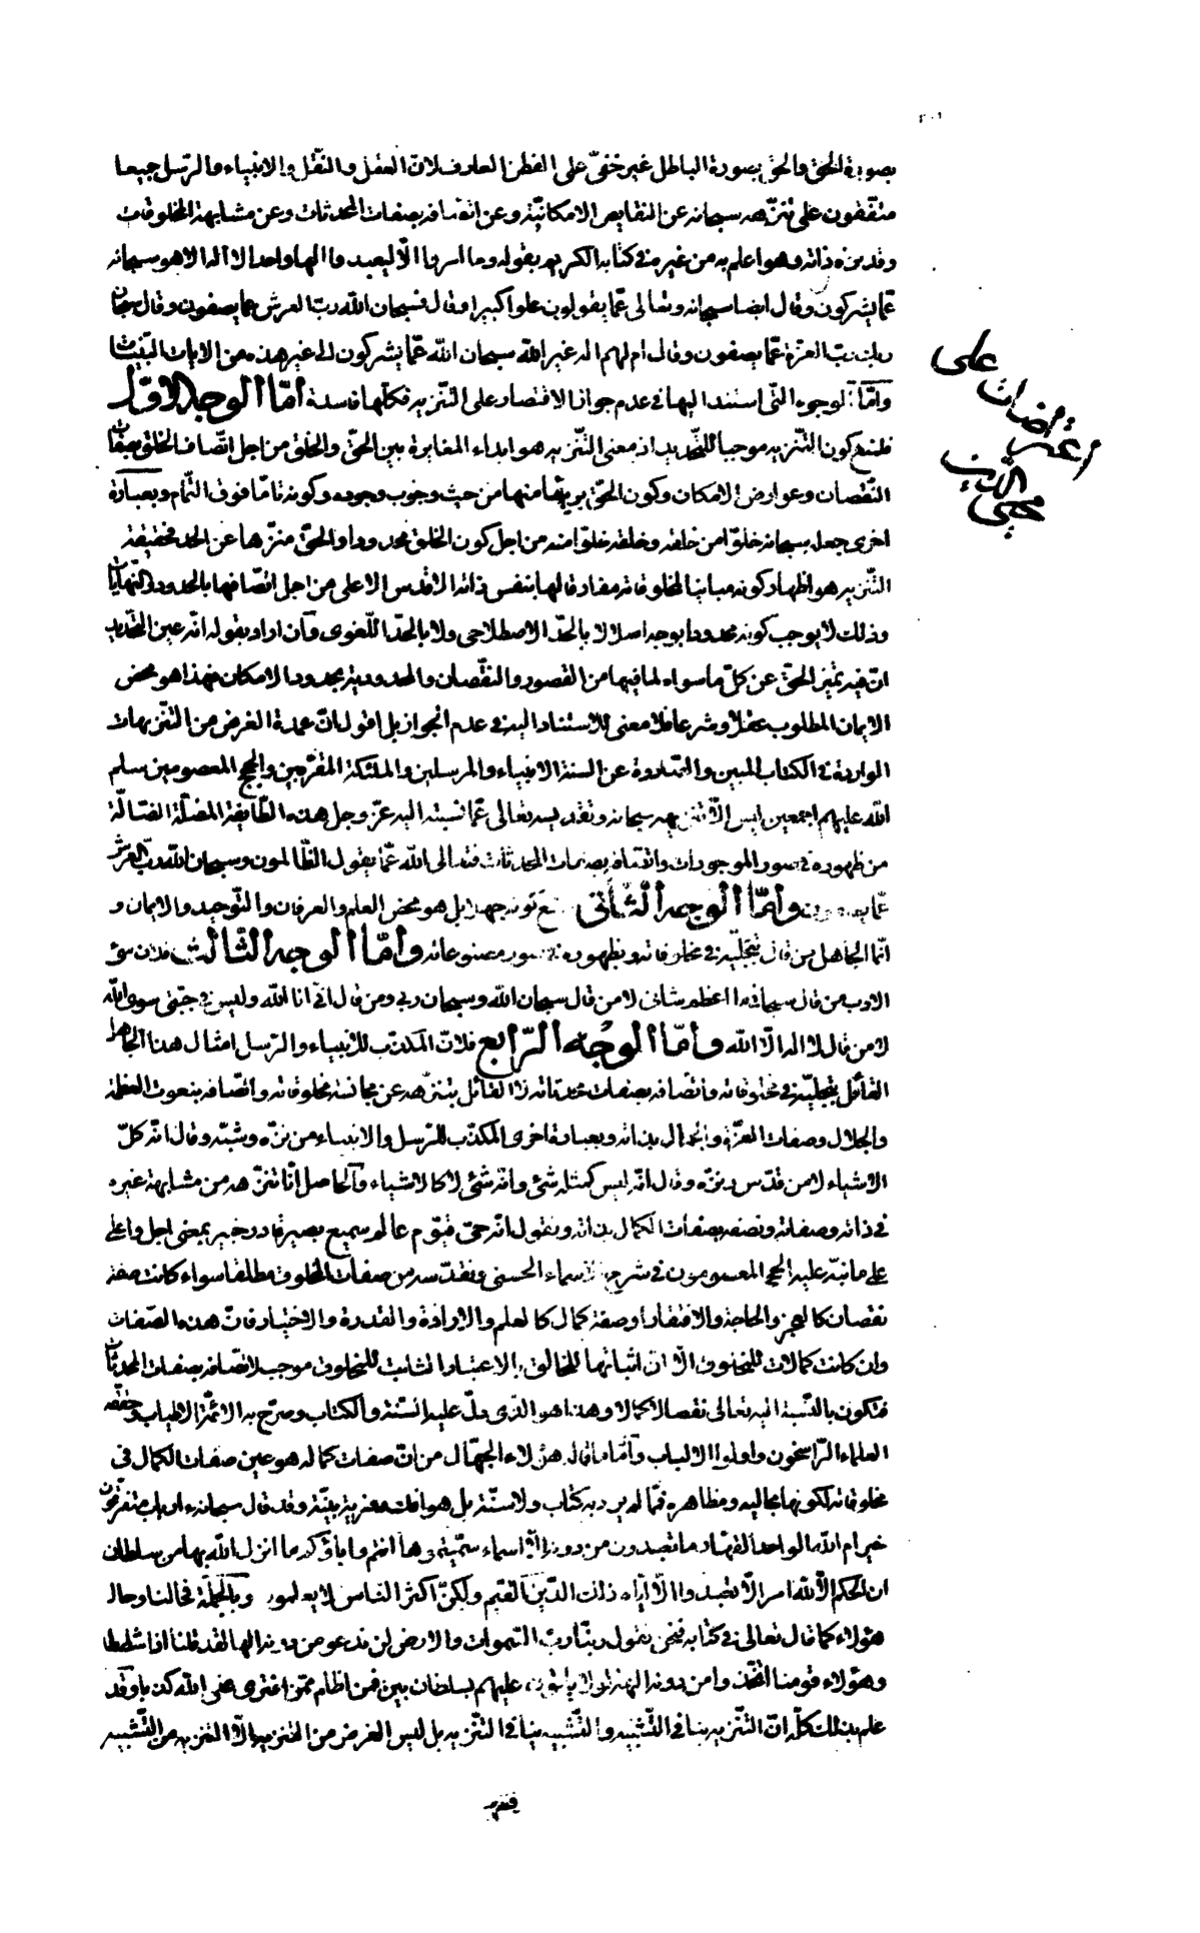 ٢٠١
بصورة الحق والحق بصورة الباطل غير خفىّ على الفطن العارف لانّ العقل والنّقل والانبياء والرّسل جميعا
متفقون على تنزّهه سبحانه عن النقايص الامكانيّة وعن اتصافه بصفات المحدثات وعن مشابهة المخلوقات
وقد نزه ذاته وهو اعلم به من غيره فى كتابه الكريم بقوله وما امروا الّا ليعبدوا الها واحدا لا اله الا هو سبحانه
عمّا يشركون وقال ايضا سبحانه وتعالى عمّا يقولون علوا كبيرا وقال فسبحان الله ربّ العرش عما يصفون وقال سبحان
ربك ربّ العزة عمّا يصفون وقال ام لهم اله غير الله سبحان الله عمّا يشركون الى غير هذه من الايات البيّنات
وامّا الوجوه التّى استند اليها فى عدم جواز الاقتصار على التّنزيه فكلّها فاسدة امّا الوجه الاوّل
فلمنع كون التّنزيه موجبا للتّحديد اذ معنى التّنزيه هو ابداء المغايرة بين الحقّ والخلق من اجل اتّصاف الخلق بصفات
النّقصان وعوارض الامكان وكون الحقّ بريئا منها من حيث وجوب وجوده وكونه تامّا فوق التّمام وبعبارة
اخرى جعله سبحانه خلوّا من خلقه وخلقه خلوّا منه من اجل كون الخلق محدودا والحقّ منزّها عن الحد فحقيقة
التّنزيه هو اظهار كونه مباينا لمخلوقاته مفارقا لها بنفس ذاته الاقدس الاعلى من اجل اتّصافها بالحدود والنّهايات
وذلك لا يوجب كونه محدودا بوجه اصلا لا بالحدّ الاصطلاحى ولا بالحدّ اللّغوى وان اراد بقوله انّه عين التّحديد
انّ فيه تميّز الحقّ عن كلّ ما سواه لما فيها من القصور والنّقصان والمحدودية بحدود الامكان فهذا هو محض
الايمان المطلوب عقلا وشرعا فلا معنى للاستناد اليه فى عدم الجواز بل اقول انّ عمدة الغرض من التّنزيهات
الواردة فى الكتاب المبين والصّادرة عن السنة الانبياء والمرسلين والملئكة المقرّبين والحجج المعصومين سلم
الله عليهم اجمعين ليس الّا تنزيهه سبحانه وتقديسه تعالى عمّا نسبته اليه عزّ وجل هذه الطّايفة المضلّة الضّالّة
من ظهوره فى صور الموجودات واتّصافه بصفات المحدثات فتعالى الله عمّا يقول الظّالمون وسبحان الله ربّ العرش
عمّا يصفون وامّا الوجه الثّانى فلمنع كونه جهلا بل هو محض العلم والعرفان والتّوحيد والايمان و
انّما الجاهل من قال بتجلّيه فى مخلوقاته وبظهوره فى صور مصنوعاته وامّا الوجه الثّالث فلان سؤ
الادب من قال سبحانى ما اعظم شانى لا من قال سبحان الله وسبحان ربى ومن قال انّى انا الله وليس فى جبّتى سوى الله
لا من قال لا اله الّا الله وامّا الوجه الرّابع فلانّ المكذّب للانبياء والرّسل امثال هذا الجاهل
القائل بتجلّيه فى مخلوقاته واتّصافه بصفات محدثاته لا القائل بتنزّهه عن مجانسة مخلوقاته واتّصافه بنعوت العظمة
والجلال وصفات العزّة والجمال بذاته وبعبارة اخرى المكذّب للرّسل والانبياء من نزّه وشبّه وقال انّه كلّ
الاشياء لا من قدّس ونزّه وقال انّه ليس كمثله شئ وانّه شئ لا كالاشياء والحاصل انّا ننزّهه من مشابهة غيره
فى ذاته وصفاته ونصفه بصفات الكمال بذاته ونقول انّه حىّ قيّوم عالم سميع بصير قادر خبير بمعنى اجل واعلى
على ما نبّه عليه الحجج المعصومون فى شرح الاسماء الحسنى ونقدّسه من صفات المخلوق مطلقا سواء كانت صفة
نقصان كالعجز والحاجة والافتقار او صفة كمال كالعلم والارادة والقدرة والاختيار فانّ هذه الصّفات
وان كانت كمالات للمخلوق الّا ان اثباتها للخالق بالاعتبار الثابت للمخلوق موجب لاتّصافه بصفات المحدثات
فتكون بالنّسبة اليه تعالى نقصا لا كمالا وهذا هو الّذى دلّ عليه السنّة والكتاب وصرّح به الائمّة الاطياب وحقّقه
العلماء الرّاسخون واولوا الالباب وامّا ما قاله هؤلاء الجهّال من انّ صفات كماله هو عين صفات الكمال فى
مخلوقاته لكونها مجاليه ومظاهره فممّا لم يرد به كتاب ولا سنّة بل هو افك وفرية بيّنة وقد قال سبحانه ءارباب متفرّقون
خير ام الله الواحد القهّار ما تعبدون من دونه الّا اسماء سمّيتموها انتم واباؤكم ما انزل الله بها من سلطان
ان الحكم الّا لله امر الّا تعبدوا الّا ايّاه ذلك الدّين القيّم ولكنّ اكثر النّاس لا يعلمون وبالجملة فحالنا وحال
هؤلاء كما قال تعالى فى كتابه فنحن نقول ربّنا ربّ السّموات والارض لن ندعو من دونه الها لقد قلنا اذا شططا
وهؤلاء قومنا اتّخذوا من دونه الهة لولا ياتون عليهم بسلطان بيّن فمن اظلم ممّن افترى على الله كذبا وقد
علم بذلك كلّه انّ التّنزيه ينافى التّشبيه والتّشبيه ينافى التّنزيه بل ليس الغرض من التنزيه الّا التنزيه من التّشبيه
اعتراضات على
محيى الدّين